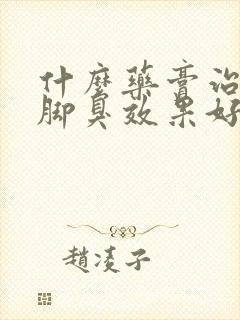 什麼藥膏治
脚臭效果好
趙凌子